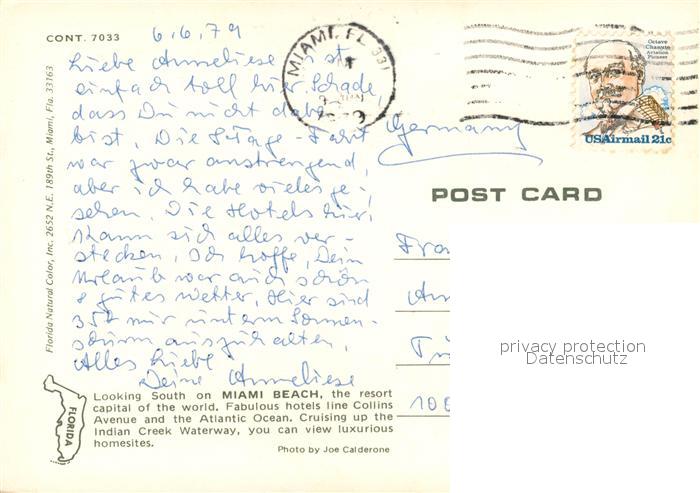 CONT. 7033
6.6.79
Liebe Anneliese, ist
einfach toll hier. Schade,
dass Du nicht dabei
bist. Die Tage-Fahrt
war zwar anstrengend,
aber ich habe vieles ge-
sehen. Die Hotels hier,
kann sich alles ver-
stecken. Ich hoffe, Dein
Urlaub war auch schön
& gutes Wetter. Hier sind
35° nur unterm Sonnen-
schirm auszuhalten.
Alles Liebe
Deine Anneliese
MIAMI, FL 331
Octave
Chanute
Aviation
Pioneer
USAirmail 21c
Germany
POST CARD
Fra
An
Tü
100
privacy protection
Datenschutz
Florida Natural Color, Inc. 2652 N.E. 189th St., Miami, Fla. 33163
FLORIDA
Looking South on MIAMI BEACH, the resort
capital of the world. Fabulous hotels line Collins
Avenue and the Atlantic Ocean. Cruising up the
Indian Creek Waterway, you can view luxurious
homesites.
Photo by Joe Calderone